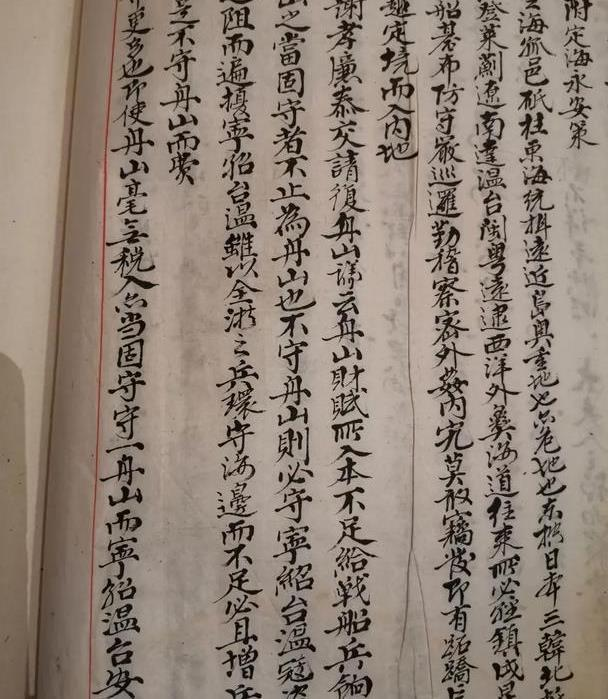 附定海永安策
海孤邑砥柱東海統楫遠近島奧重地也亦危地也东控日本三韓北
登萊薊遼南達温台閩粤遠逮西洋外彝海道往来所必經鎮戍
船碁布防守嚴巡邏勤稽察密外姦内宄莫敢竊发即有跖蹻
越定境而入内地
謝孝廉泰交請復舟山議云舟山財賦所入本不足給戰船兵餉
山之當固守者不止為舟山也不守舟山則必守寧紹台温寇
阻而遍擾寧紹台温雖以全浙之兵環守海邊而不足必且增兵
是不守舟山而費
更多也即使舟山毫無税入亦当固守守一舟山而寧紹温台安